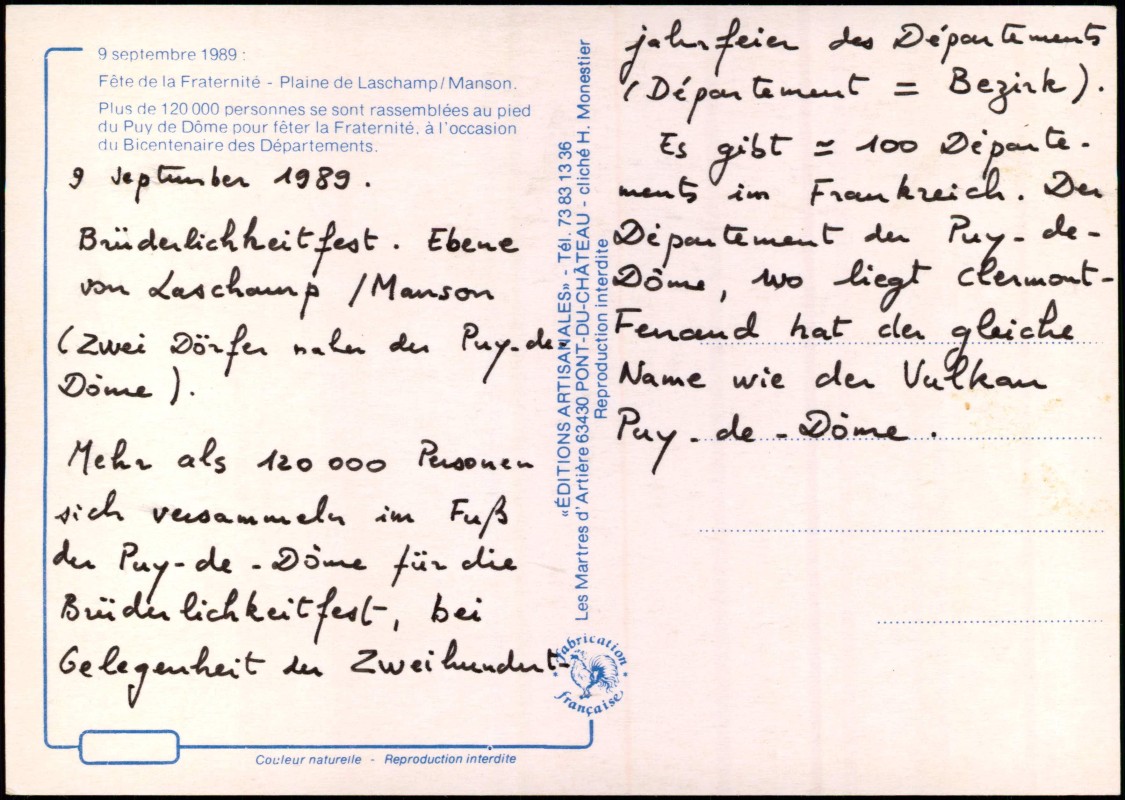 9 septembre 1989 :
Fête de la Fraternité - Plaine de Laschamp/Manson.
Plus de 120 000 personnes se sont rassemblées au pied
du Puy de Dôme pour fêter la Fraternité, à l'occasion
du Bicentenaire des Départements.
9 september 1989.
Brüderlichkeitfest. Ebene
von Laschamp / Manson
(Zwei Dörfer naher der Puy-de-
Dôme).
Mehr als 120 000 Personen
sich versammeln im Fuß
der Puy-de-Dôme für die
Brüderlichkeitfest, bei
Gelegenheit der Zweihundert-
«ÉDITIONS ARTISANALES» - Tél. 73 83 13 36
Les Martres d'Artière 63430 PONT-DU-CHÂTEAU - cliché H. Monestier
Reproduction interdite
fabrication
française
jahrfeier des Départements
(Département = Bezirk).
Es gibt ≃ 100 Départe-
ments im Frankreich. Der
Département der Puy-de-
Dôme, wo liegt Clermont-
Ferrand hat der gleiche
Name wie der Vulkan
Puy-de-Dôme.
Couleur naturelle - Reproduction interdite